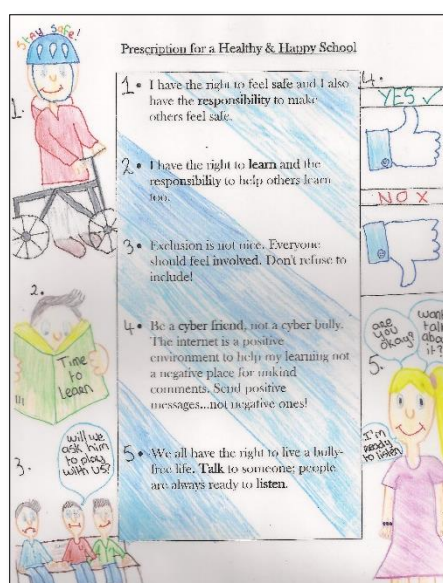 Stay Safe!
Prescription for a Healthy & Happy School
1. • I have the right to feel safe and I also
have the responsibility to make
others feel safe.
2 • I have the right to learn and the
responsibility to help others learn
too.
3 • Exclusion is not nice. Everyone
should feel involved. Don't refuse to
include!
4 • Be a cyber friend, not a cyber bully.
The internet is a positive
environment to help my learning not
a negative place for unkind
comments. Send positive
messages...not negative ones!
5 • We all have the right to live a bully-
free life. Talk to someone; people
are always ready to listen.
1.
2.
Time
to
Learn
3.
will we
ask him
to play
with us?
4.
YES ✓
NO X
5.
are
you
okay?
want
talk
abo
it?
I'm
Ready
to listen